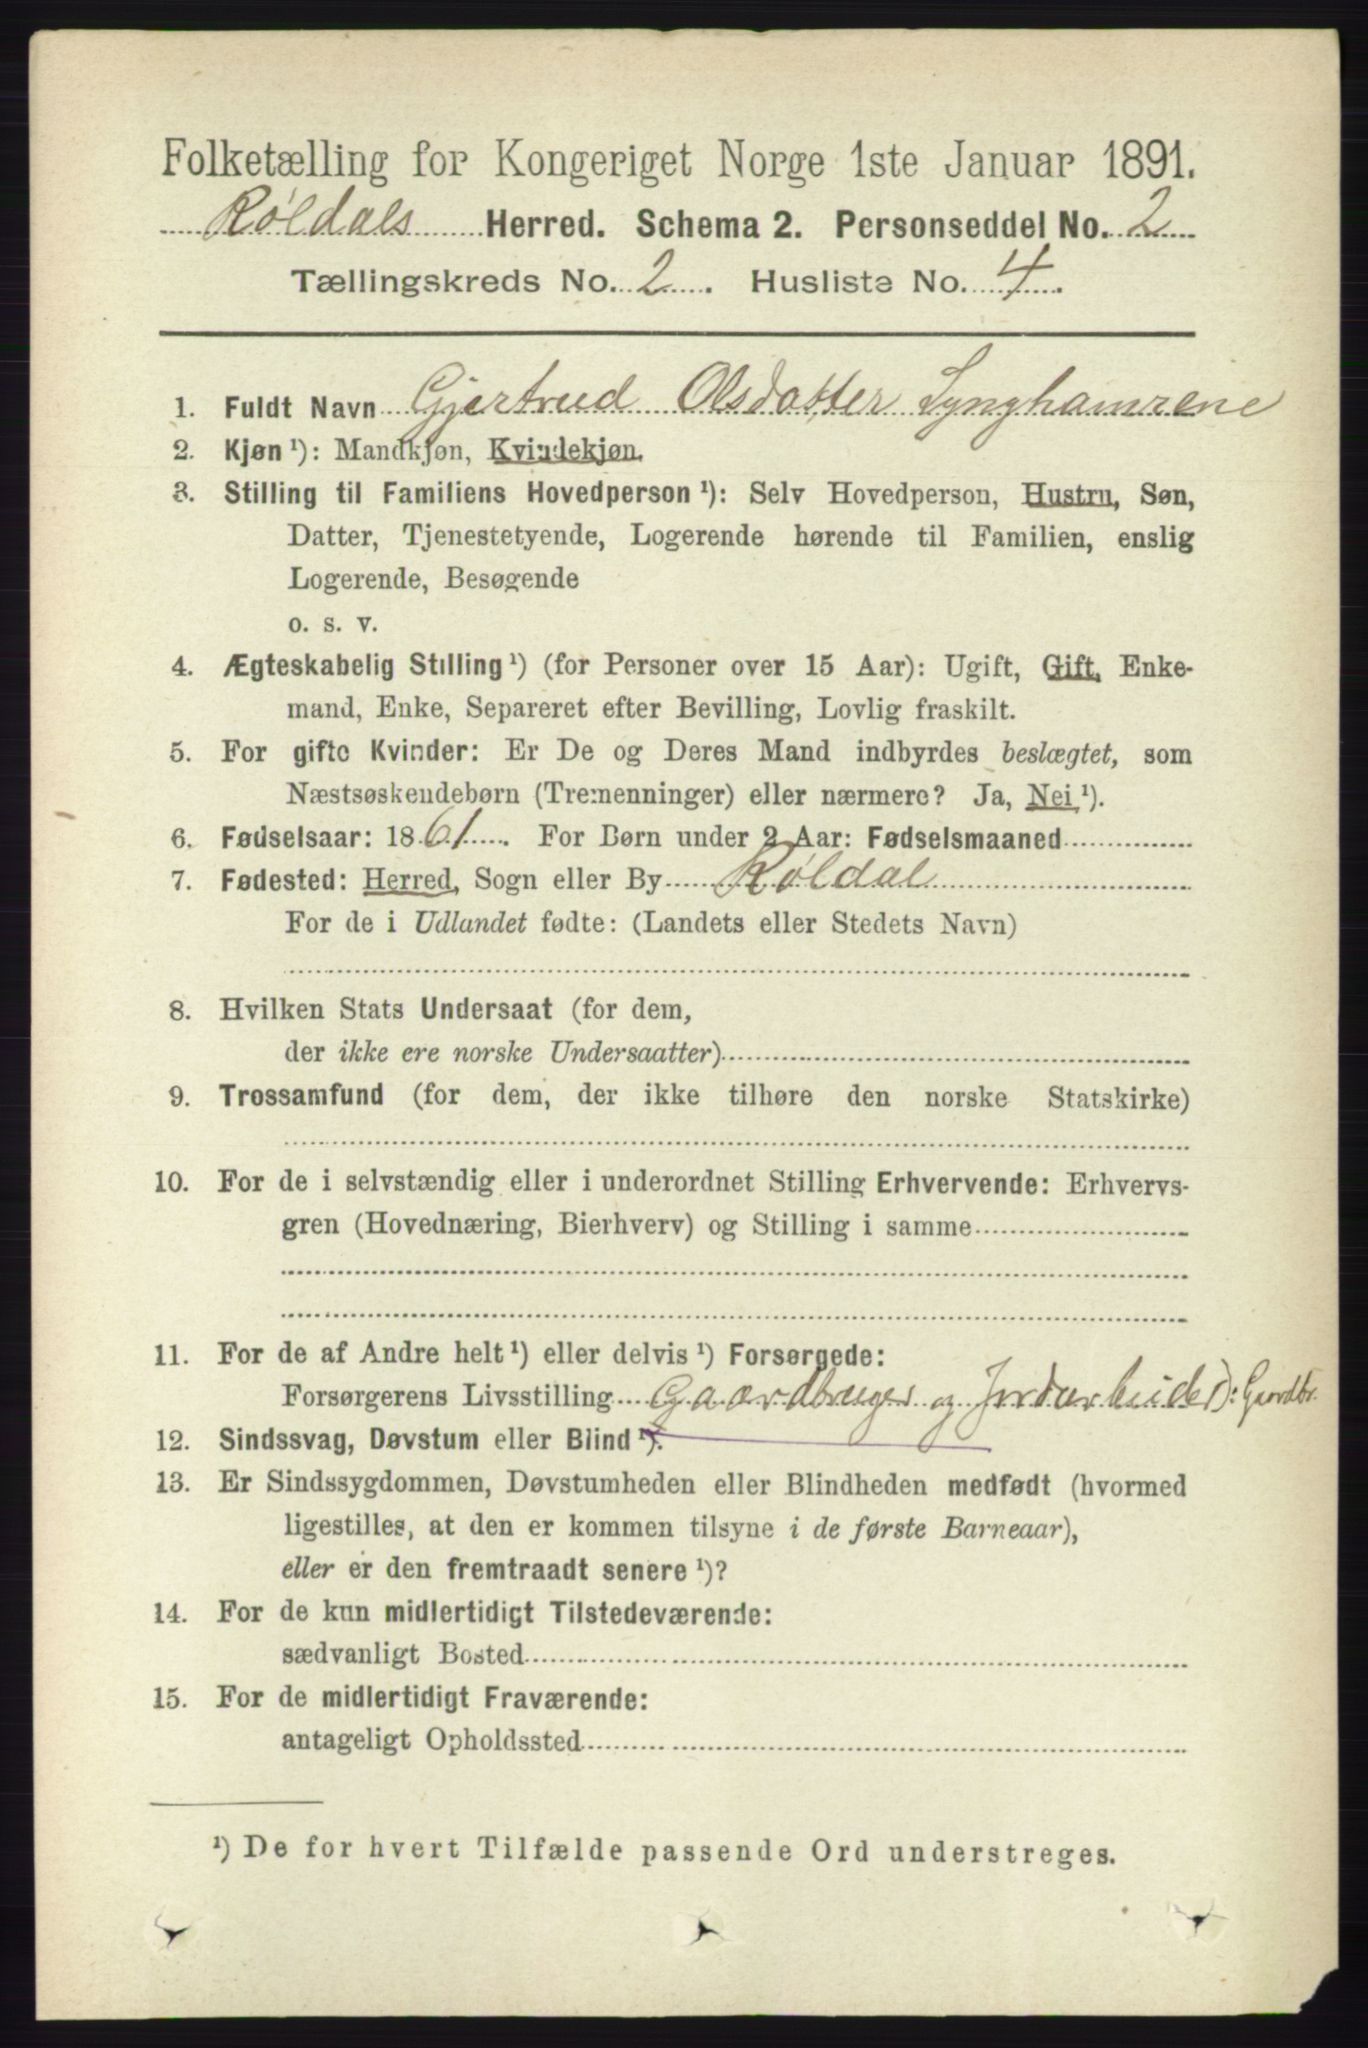 Folketælling for Kongeriget Norge 1ste Januar 1891.
Røldals Herred. Schema 2. Personseddel No. 2
Tællingskreds No. 2. Husliste No. 4.
1. Fuldt Navn Gjertrud Olsdatter Lynghamrene
2. Kjøn ¹): Mandkjøn, Kvindekjøn.
3. Stilling til Familiens Hovedperson ¹): Selv Hovedperson, Hustru, Søn,
Datter, Tjenestetyende, Logerende hørende til Familien, enslig
Logerende, Besøgende
o. s. v.
4. Ægteskabelig Stilling ¹) (for Personer over 15 Aar): Ugift, Gift, Enke-
mand, Enke, Separeret efter Bevilling, Lovlig fraskilt.
5. For gifte Kvinder: Er De og Deres Mand indbyrdes beslægtet, som
Næstsøskendebørn (Tremenninger) eller nærmere? Ja, Nei ¹).
6. Fødselsaar: 1861. For Børn under 2 Aar: Fødselsmaaned
7. Fødested: Herred, Sogn eller By Røldal
For de i Udlandet fødte: (Landets eller Stedets Navn)
8. Hvilken Stats Undersaat (for dem,
der ikke ere norske Undersaatter)
9. Trossamfund (for dem, der ikke tilhøre den norske Statskirke)
10. For de i selvstændig eller i underordnet Stilling Erhvervende: Erhvervs-
gren (Hovednæring, Bierhverv) og Stilling i samme
11. For de af Andre helt ¹) eller delvis ¹) Forsørgede:
Forsørgerens Livsstilling Gaardbruger og Jordarbeider): Gaardbr.
12. Sindssvag, Døvstum eller Blind ¹).
13. Er Sindssygdommen, Døvstumheden eller Blindheden medfødt (hvormed
ligestilles, at den er kommen tilsyne i de første Barneaar),
eller er den fremtraadt senere ¹)?
14. For de kun midlertidigt Tilstedeværende:
sædvanligt Bosted
15. For de midlertidigt Fraværende:
antageligt Opholdssted
¹) De for hvert Tilfælde passende Ord understreges.